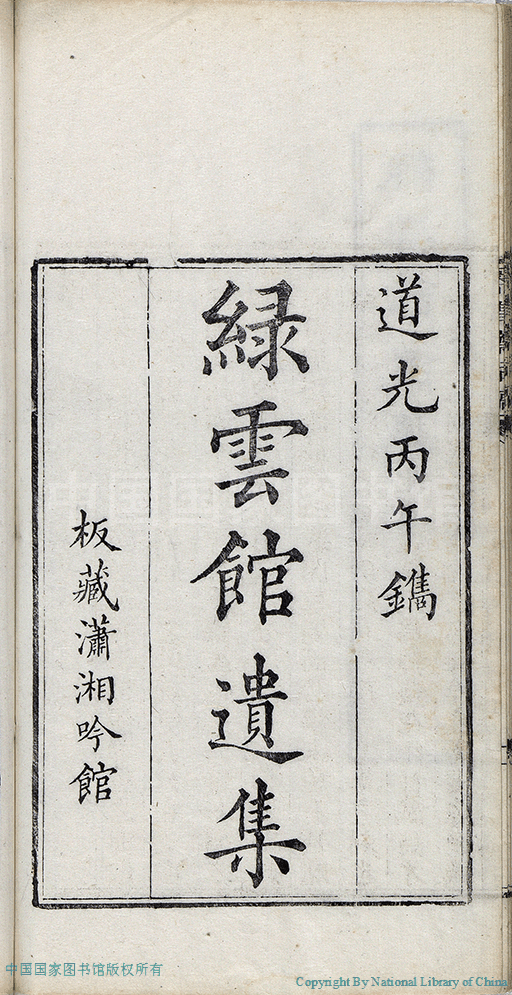 道光丙午鐫
綠雲館遺集
板藏瀟湘吟館
中国国家图书馆版权所有
Copyright By National Library of China